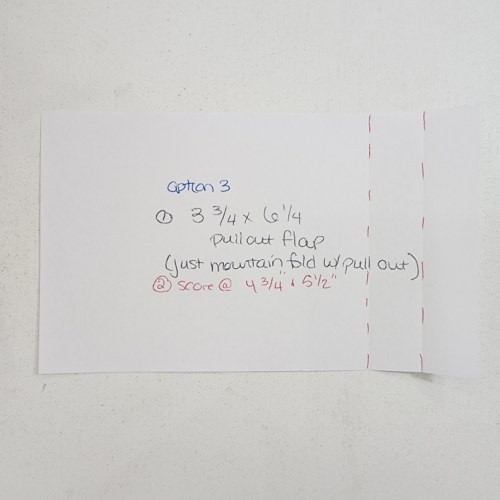 option 3
① 3 3/4 x 6 1/4
pull out flap
(just mountain fold w/ pull out)
② score @ 4 3/4" & 5 1/2"